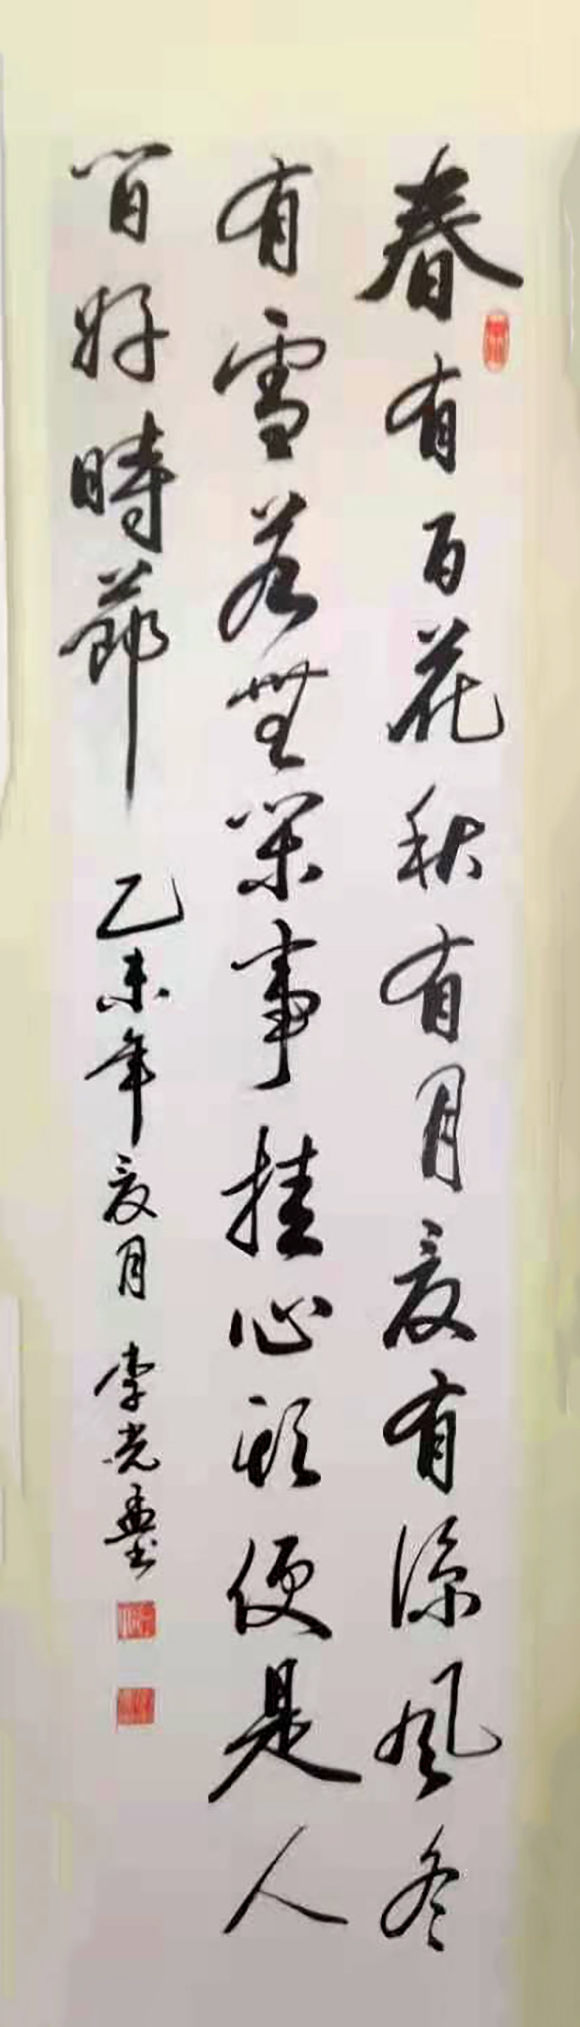 春有百花秋有月夏有涼風冬
有雪若無閑事挂心頭便是人
間好時節
乙未年夏月 李光孟书